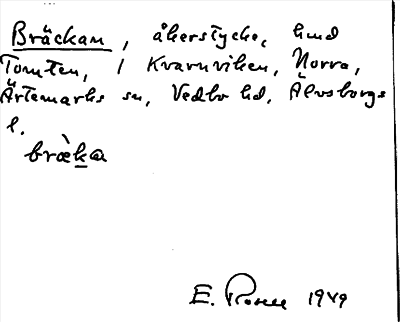 Bräckan, åkerstycke, hmd
Tomten, i Kvarnviken, Norra,
Ärtemarks sn, Vedbo hd, Älvsborgs
l.
bræ̀ka
E. Rosell 1949